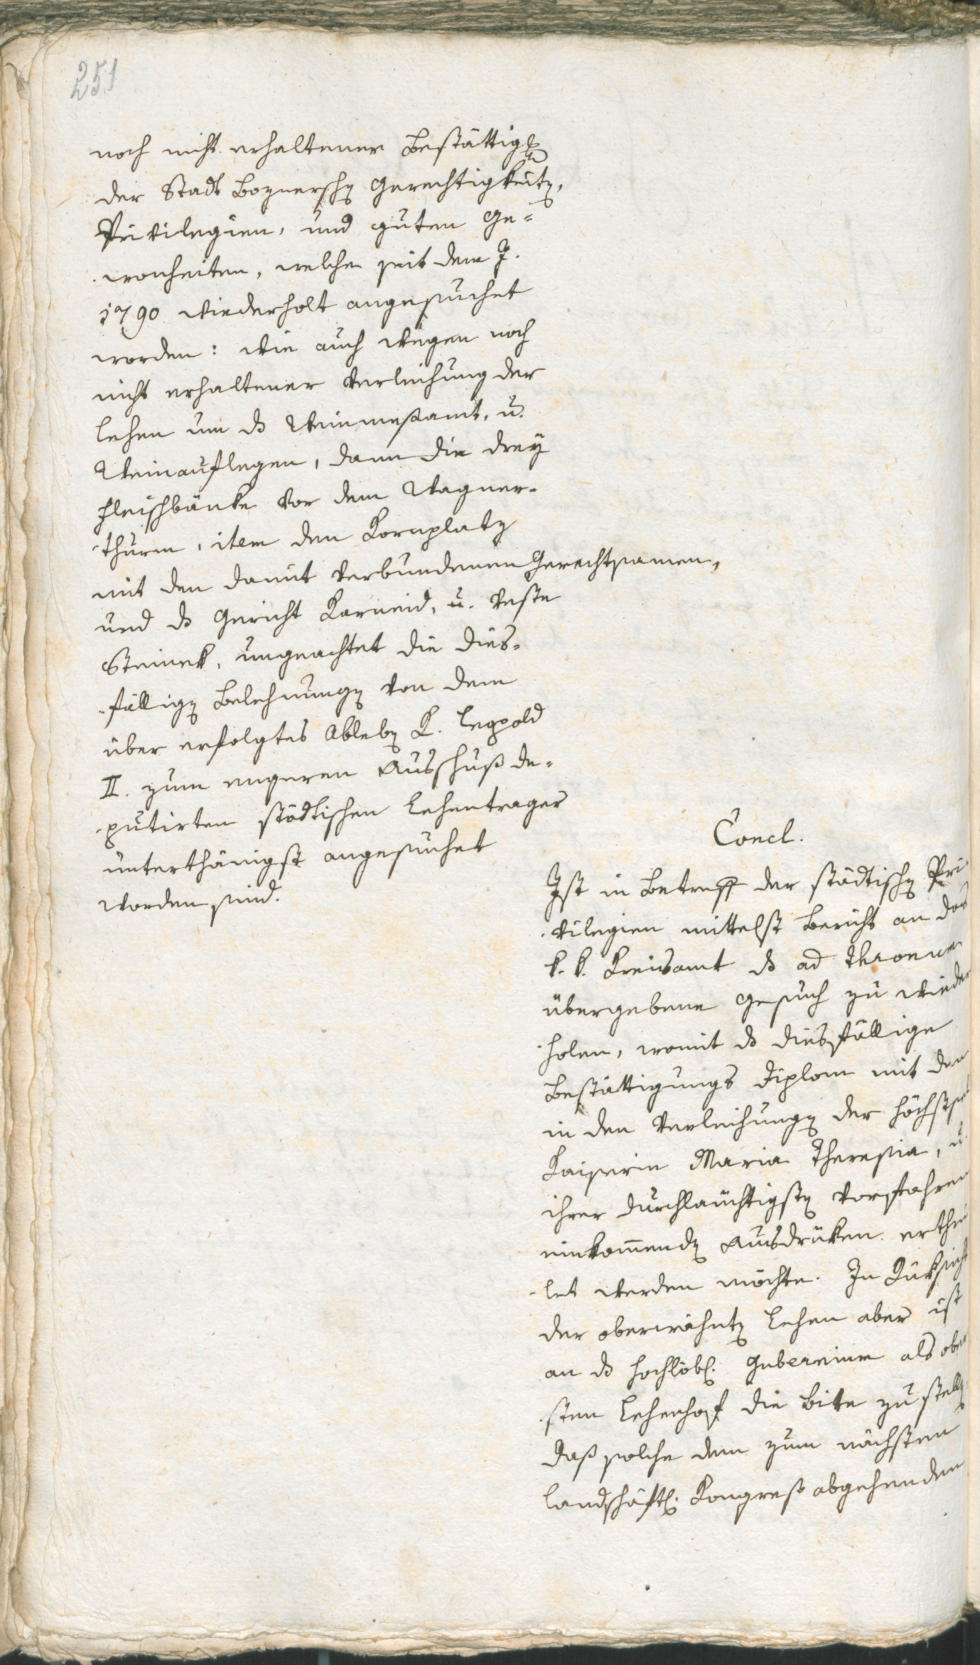 251
noch nicht erhaltener Bestättig¬
der Stadt Boznerschen Gerechtigkeiten,
Privilegien, und guten Ge=
wonheiten, welche seit dem J.
1790 wiederholt angesuchet
worden: wie auch wegen noch
nicht erhaltener Verleihung der
Lehen um ds Weinmeßamt, u.
Weinauflegen, dann die drey
Fleischbänke vor dem Wagner=
thurm, item den Kornplatz
mit den damit verbundenen Gerechtsamen,
und ds Gericht Karneid, u. Veste
Steinek, ungeachtet die dies=
fälligen Belehnungen von dem
über erfolgtes Ableben K. Leopold
II. zum engeren Ausschuß de=
putirten städtischen Lehentrager
unterthänigst angesuchet
worden sind.
Concl.
Ist in Betreff der städtischen Pri
vilegien mittelst Bericht an das
k. k. Kreisamt ds ad thronum
übergebene Gesuch zu wieder
holen, womit ds diesfällige
Bestättigungs Diplom mit den
in den Verleihungen der höchsts.
Kaiserin Maria Theresia, u.
ihrer durchlauchtigsten Vorfahren
einkommenden Ausdrüken erthei
let werden möchte. In Rüksicht
der oberwähnten Lehen aber ist
an ds hochlöbl. Gubernium als ober
sten Lehenhof die Bitte zu stellen
daß solche dem zum nächsten
landschäftl. Kongreß abgehenden